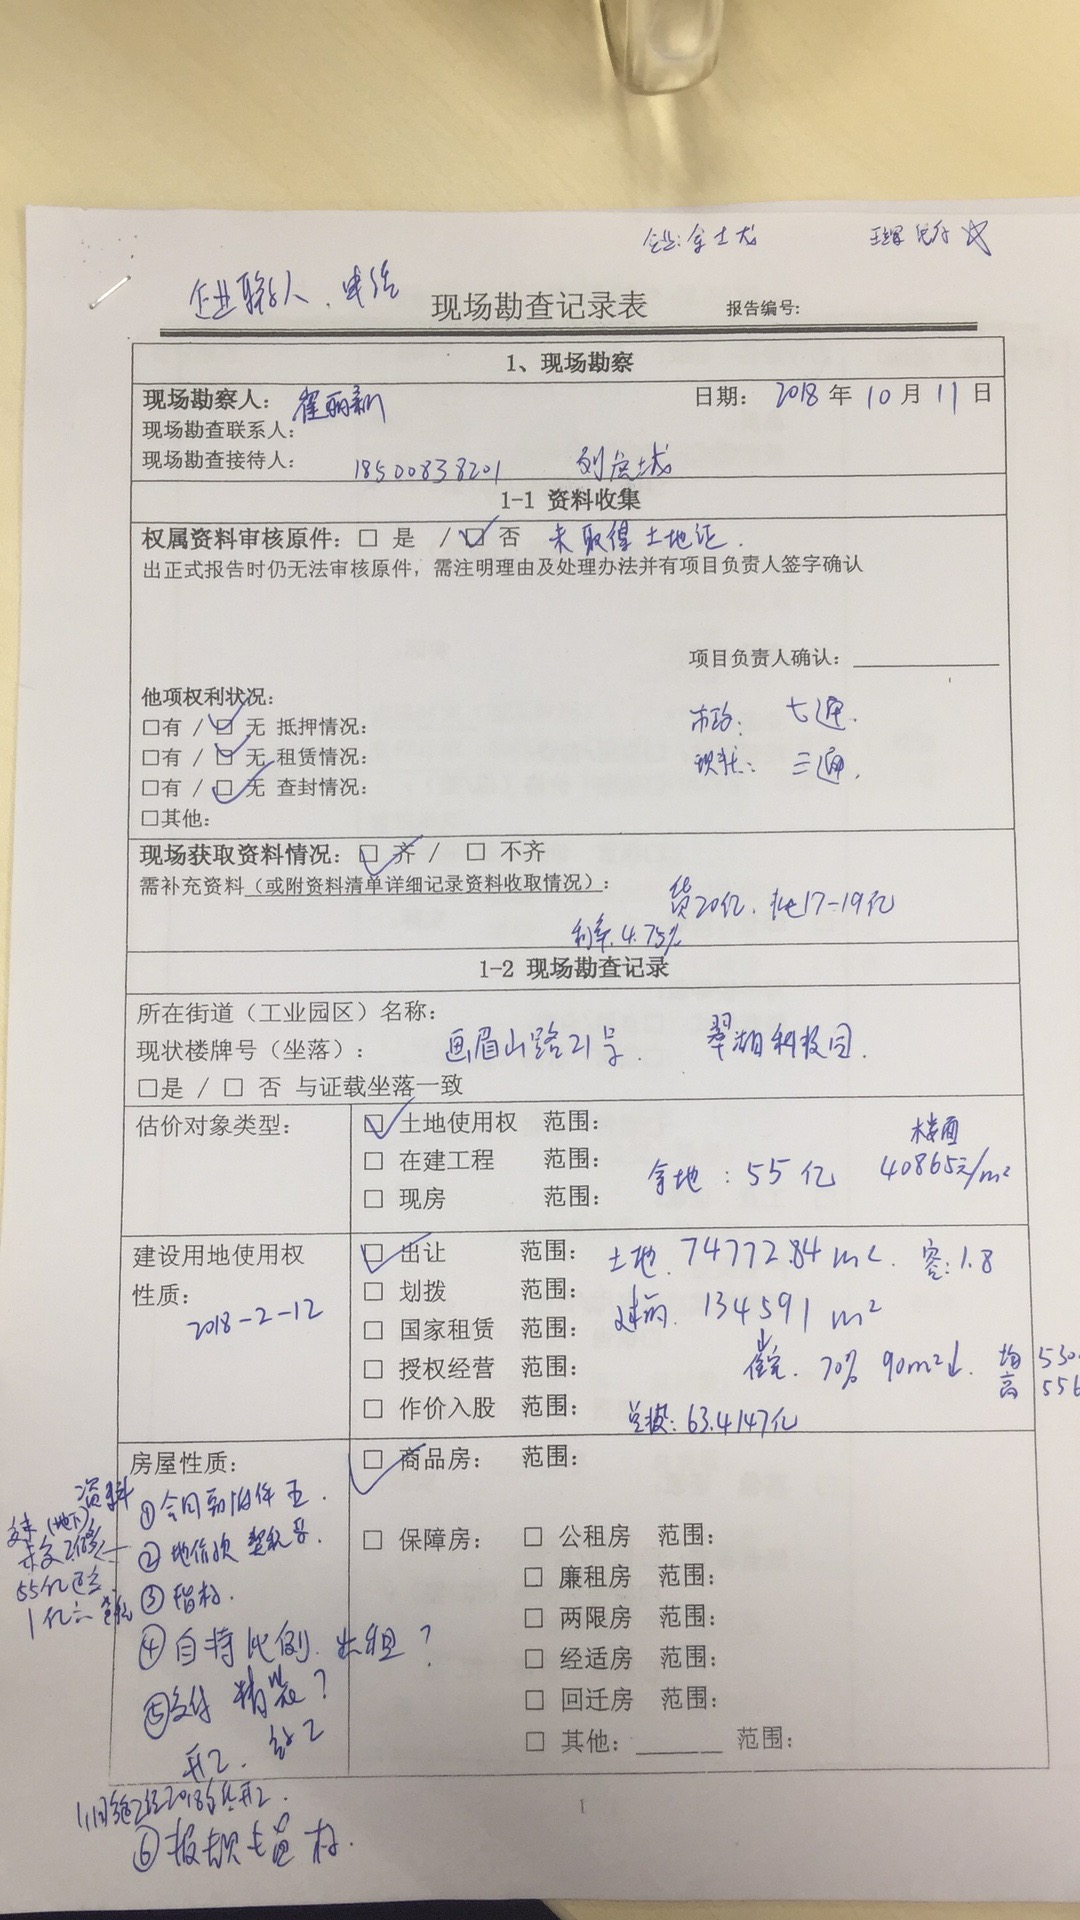 企业联系人:
现场勘查记录表 报告编号:
1、现场勘察
现场勘察人: 翟丽新 日期: 2018 年 10 月 11 日
现场勘查联系人:
现场勘查接待人: 18500838201
1-1 资料收集
权属资料审核原件: □ 是 / ☑ 否 未取得土地证.
出正式报告时仍无法审核原件, 需注明理由及处理办法并有项目负责人签字确认
项目负责人确认:
他项权利状况:
□有 / ☑ 无 抵押情况: 市政: 七通.
□有 / ☑ 无 租赁情况: 现状: 三通.
□有 / ☑ 无 查封情况:
□其他:
现场获取资料情况: ☑ 齐 / □ 不齐
需补充资料(或附资料清单详细记录资料收取情况):
贷20亿. 批17-19亿
利率4.75%
1-2 现场勘查记录
所在街道(工业园区)名称:
现状楼牌号(坐落): 画眉山路21号. 翠湖科技园.
□是 / □ 否 与证载坐落一致
估价对象类型: ☑ 土地使用权 范围:
□ 在建工程 范围:
□ 现房 范围:
拿地: 55亿 楼面 40865元/m²
建设用地使用权性质: 2018-2-12
☑ 出让 范围: 土地 74772.84m². 容:1.8
□ 划拨 范围:
□ 国家租赁 范围: 建面. 134591m²
□ 授权经营 范围: 住宅. 70% 90m²↓. 均 530
高 556
□ 作价入股 范围: 总投: 63.4147亿
房屋性质: ☑ 商品房: 范围:
□ 保障房: □ 公租房 范围:
□ 廉租房 范围:
□ 两限房 范围:
□ 经适房 范围:
□ 回迁房 范围:
□ 其他: 范围:
资料
① 合同
② 地价款 契税票.
55亿
③ 指标.
④ 自持比例. 出租?
⑤ 交付 精装?
开工.
⑥
1